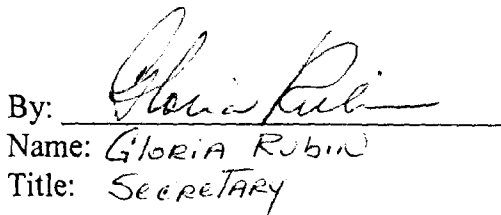 By: Gloria Rubin
Name: Gloria Rubin
Title: Secretary